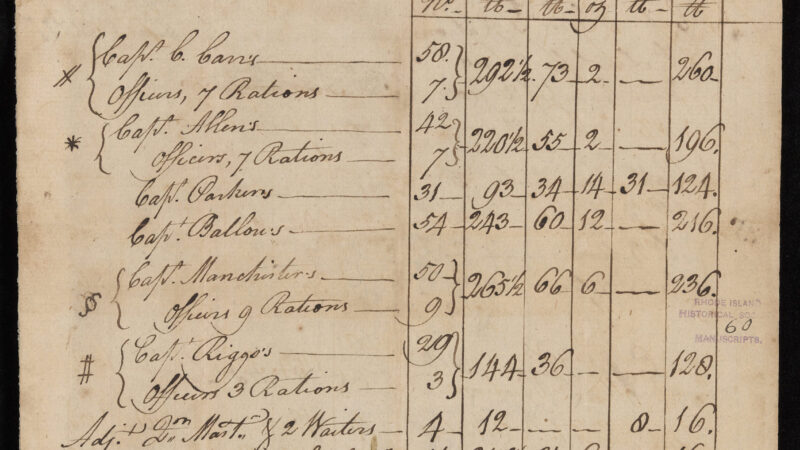 No. lb lb oz lb lb
Capt. C. Carr's 58 292½ 73 2 — 260
Officers, 7 Rations 7
Capt. Allen's 42 220½ 55 2 — 196
Officers, 7 Rations 7
Capt. Parker's 31 93 34 14 31 124
Capt. Ballou's 54 243 60 12 — 216
Capt. Manchester's 50 265½ 66 6 — 236
Officers 9 Rations 9
Capt. Riggs's 29 144 36 — — 128
Officers 3 Rations 3
Adjt. Qr. Mastr. & 2 Waiters 4 12 — — 8 16
RHODE ISLAND
HISTORICAL SOC
60
MANUSCRIPTS.